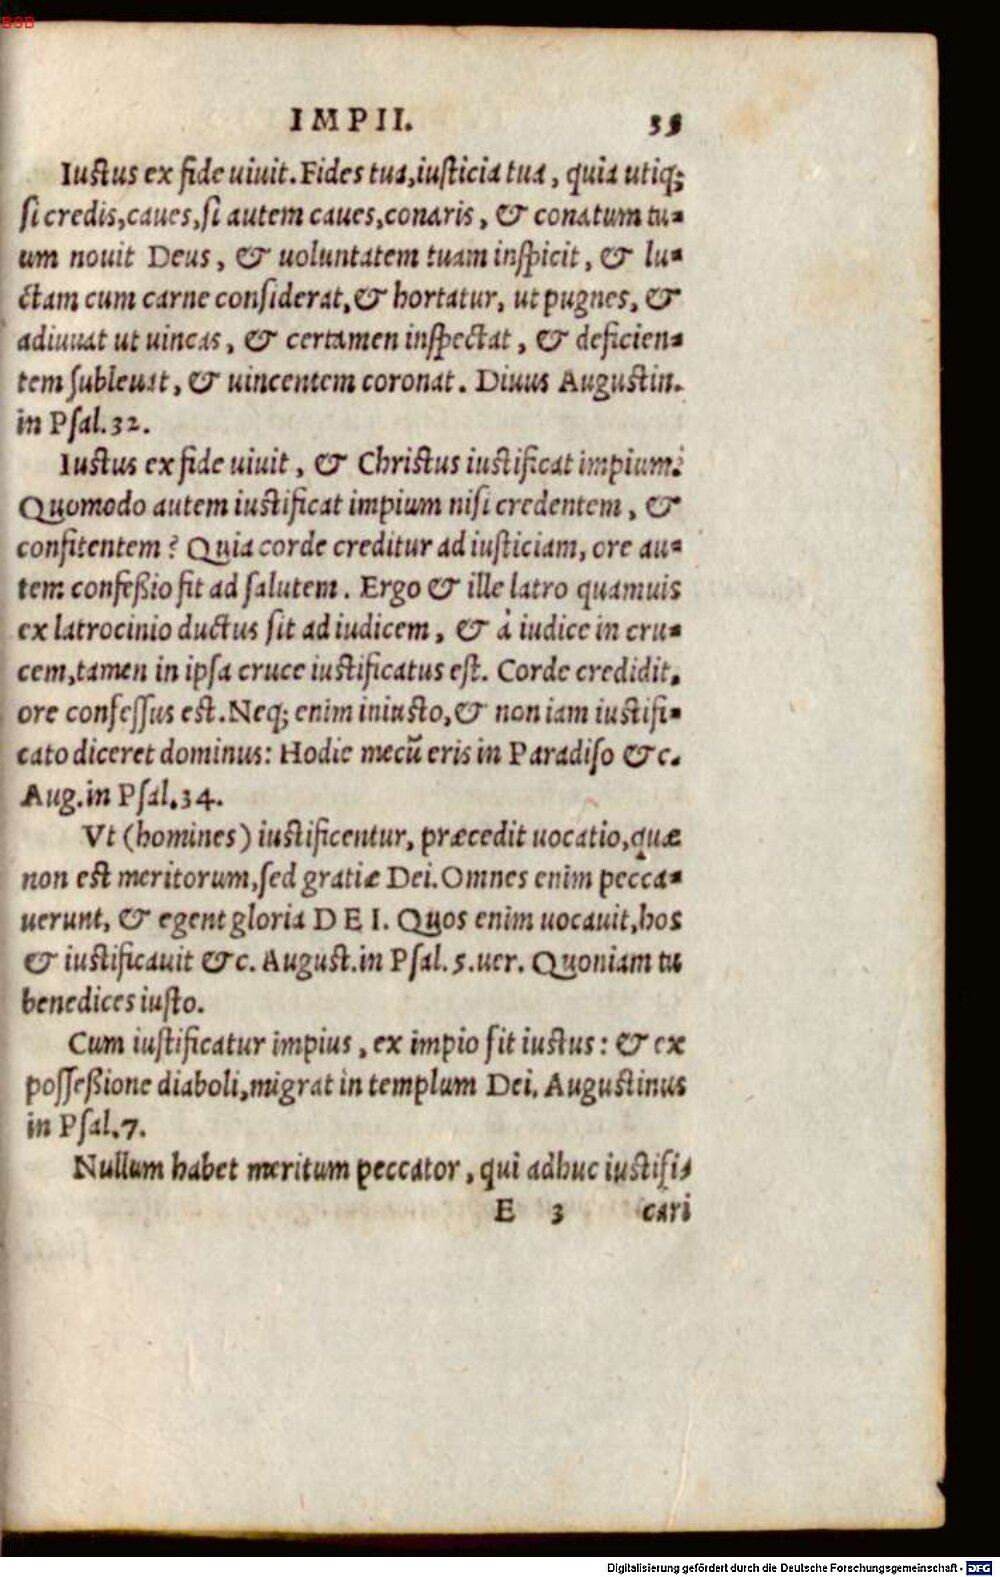 BSB
IMPII. 35
Iustus ex fide uiuit. Fides tua, iusticia tua, quia utiq;
si credis, caues, si autem caues, conaris, & conatum tu=
um nouit Deus, & uoluntatem tuam inspicit, & lu=
ctam cum carne considerat, & hortatur, ut pugnes, &
adiuuat ut uincas, & certamen inspectat, & deficien=
tem subleuat, & uincentem coronat. Diuus Augustin.
in Psal. 32.
Iustus ex fide uiuit, & Christus iustificat impium:
Quomodo autem iustificat impium nisi credentem, &
confitentem? Quia corde creditur ad iusticiam, ore au=
tem confeßio fit ad salutem. Ergo & ille latro quamuis
ex latrocinio ductus sit ad iudicem, & à iudice in cru=
cem, tamen in ipsa cruce iustificatus est. Corde credidit,
ore confessus est. Neq; enim iniusto, & non iam iustifi=
cato diceret dominus: Hodie mecũ eris in Paradiso &c.
Aug. in Psal. 34.
Vt (homines) iustificentur, præcedit uocatio, quæ
non est meritorum, sed gratiæ Dei. Omnes enim pecca=
uerunt, & egent gloria DEI. Quos enim uocauit, hos
& iustificauit &c. August. in Psal. 5. uer. Quoniam tu
benedices iusto.
Cum iustificatur impius, ex impio fit iustus: & ex
posseßione diaboli, migrat in templum Dei. Augustinus
in Psal. 7.
Nullum habet meritum peccator, qui adhuc iustifi=
E 3 cari
Digitalisierung gefördert durch die Deutsche Forschungsgemeinschaft - DFG